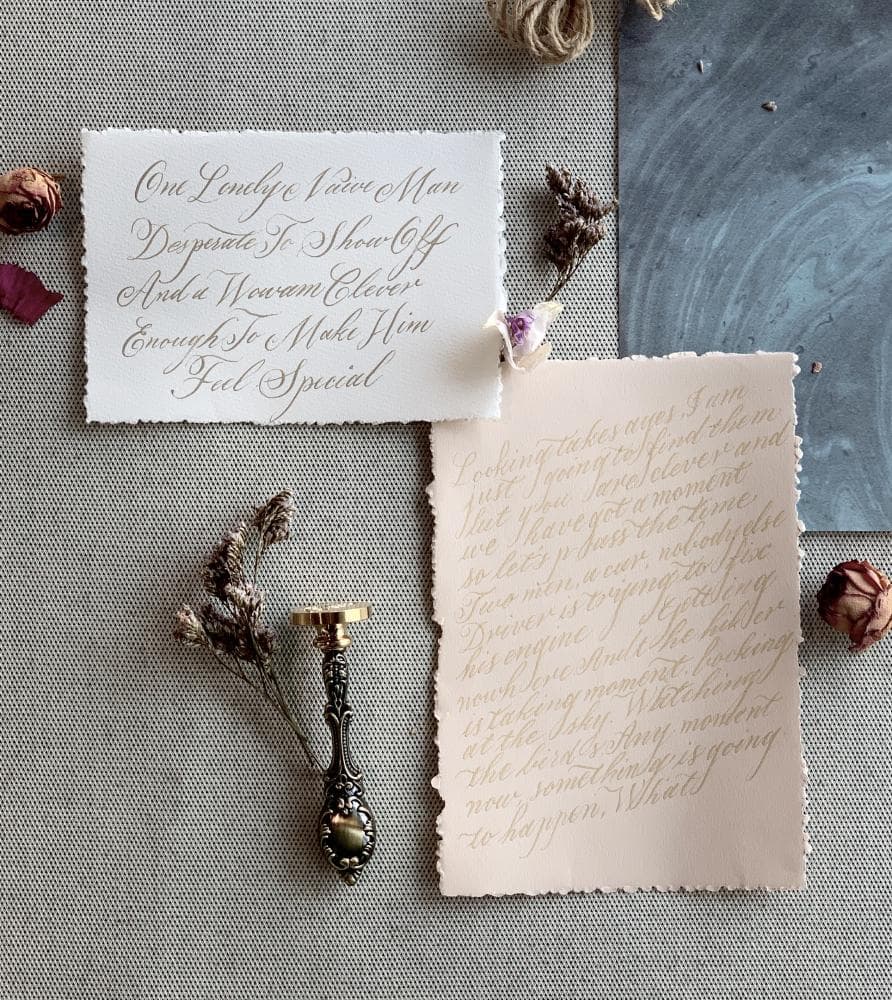 One Lonely Naive Man
Desperate To Show Off
And a Wowam Clever
Enough To Make Him
Feel Special
Looking takes ayes, I am
just going to find them
but you are clever and
we have got a moment
so let's pass the time
Two men, a car, nobody else
Driver is trying to fix
his engine. Getting
nowhere And the hitter
is taking moment, looking
at the sky. Watching
the birds Any moment
now, something is going
to happen, What